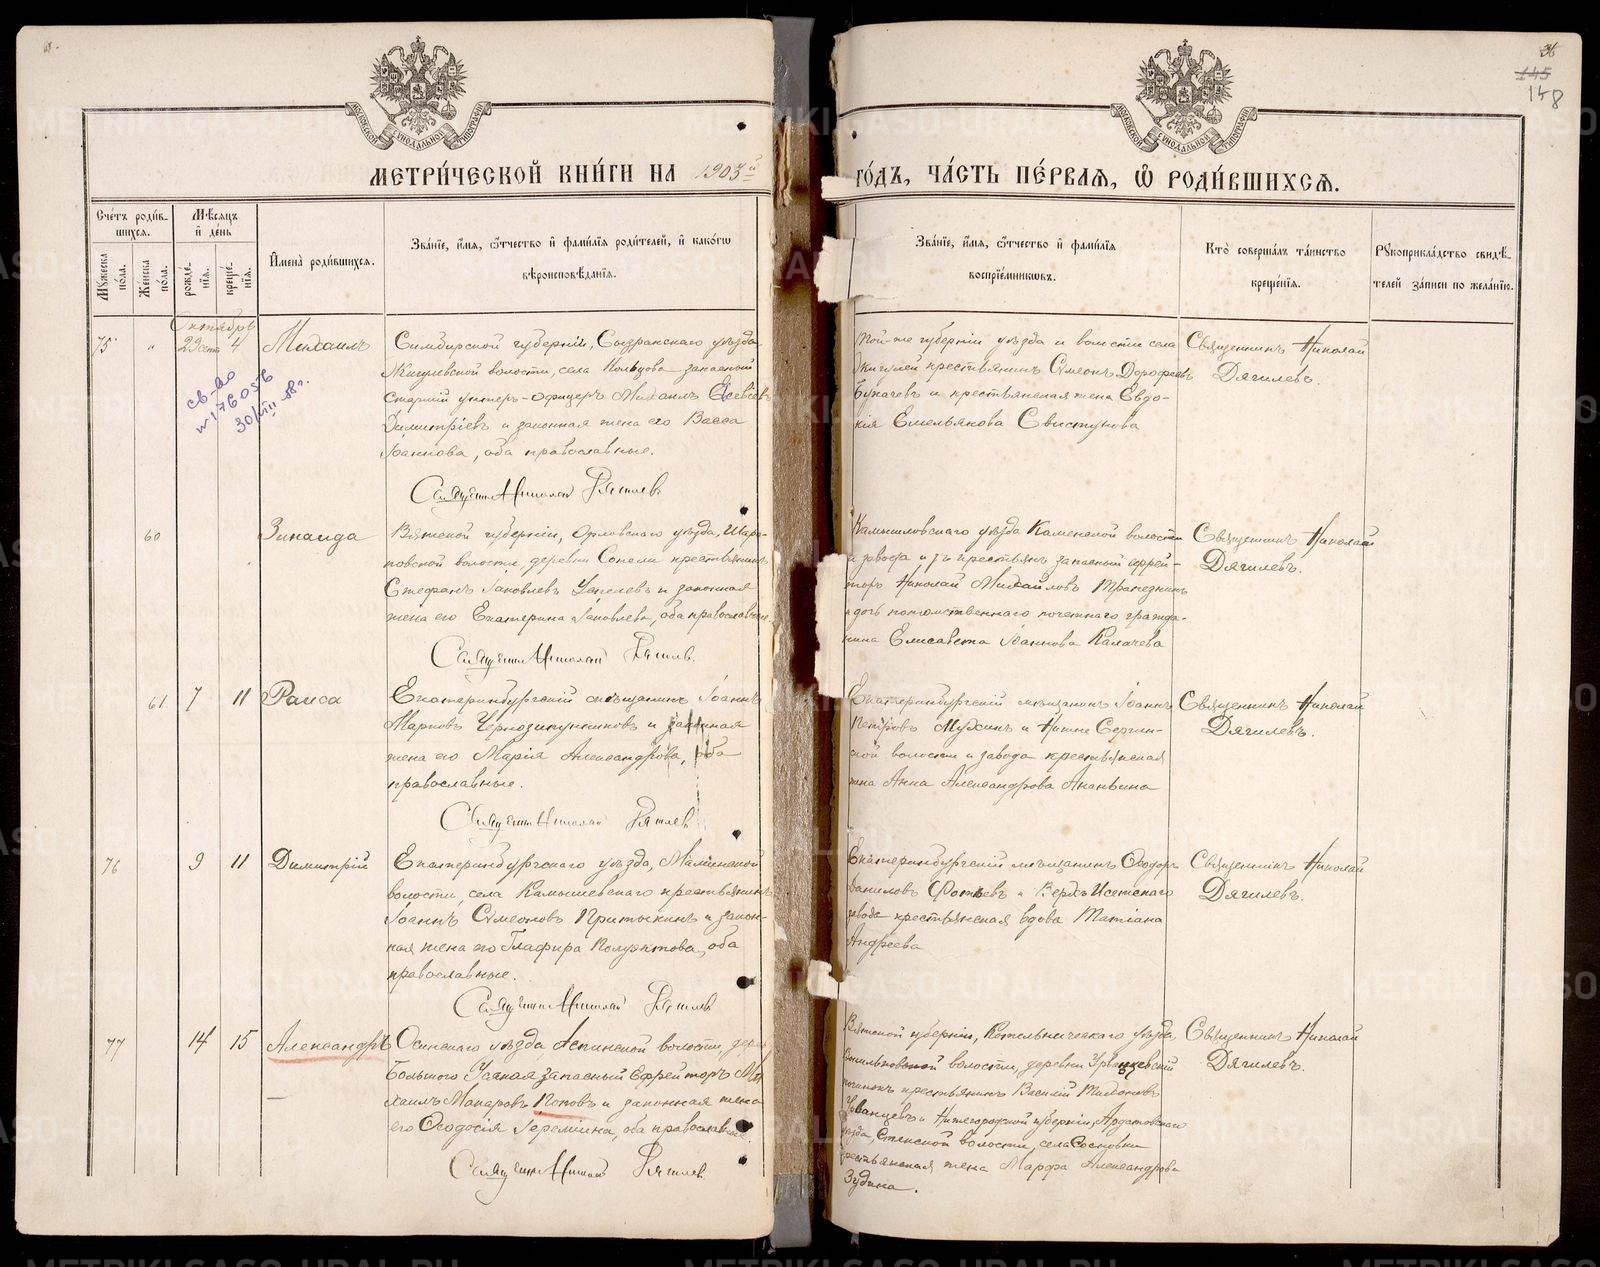 36
145
148
МОСКОВСКОЙ СѴНОДАЛЬНОЙ ТИПОГРАФІИ
МОСКОВСКОЙ СѴНОДАЛЬНОЙ ТИПОГРАФІИ
МЕТРИ́ЧЕСКОЙ КНИ́ГИ НА 1903й
ГО́ДЪ, ЧА́СТЬ ПЕ́РВАЯ, Ѡ҆ РОДИ́ВШИХСЯ.
Сче́тъ роди́в-
шихся.
Мѣ́сяцъ
и҆ день
Мꙋ́жеска по́ла.
Же́нска по́ла.
рожде́-
нїѧ.
креще́-
нїѧ.
И҆мена̀ роди́вшихся.
Зва́нїе, и҆́мѧ, ѻ҆́тчество и҆ фами́лїѧ роди́телей, и҆ како́гѡ
вѣроисповѣ́данїѧ.
Зва́нїе, и҆́мѧ, ѻ҆́тчество и҆ фами́лїѧ
воспрїе́мникѡвъ.
Кто̀ соверша́лъ та́инство
креще́нїѧ.
Рꙋкоприкла́дство свидѣ́-
телей за́писи по жела́нїю.
Октябрь
75 " 29 сент 4 Михаилъ
св-во
30/VIII 58 г.
Симбирской губерніи, Сызранскаго уѣзда
Жигулевской волости, села Кольцова запасной
старшій унтеръ-офицеръ Михаилъ Евсѣевъ
Димитріевъ и законная жена его Васса
Іоаннова, оба православные.
Священн. Николай Дягилевъ
Той-же губерніи уѣзда и волости села
Жигулей крестьянинъ Сѵмеонъ Дорофеевъ
Букачевъ и крестьянская жена Евдо-
кія Емельянова Свистунова
Священникъ Николай
Дягилевъ.
60 Зинаида
Вятской губерніи, Орловскаго уѣзда, Шара-
повской волости, деревни Сопели крестьянинъ
Стефанъ Іаковлевъ и законная
жена его Екатерина Іаковлева, оба православные
Священн. Николай Дягилев.
Камышловскаго уѣзда Каменской волости
и завода изъ крестьянъ запасный ефрей-
торъ Николай Михайловъ Трапезник
и дочь потомственнаго почетнаго гражда-
нина Елисавета Іоаннова Калачева
Священникъ Николай
Дягилевъ.
61 7 11 Раиса
Екатеринбургскій мѣщанинъ Іоаннъ
Марковъ Чернозипунниковъ и законная
жена его Марія Александрова, оба
православные.
Священн. Николай Дягилев
Екатеринбургскій мѣщанинъ Іоаннъ
Петровъ Мухинъ и Нижне Сергин-
ской волости и завода крестьянская
жена Анна Александрова Ананьина
Священникъ Николай
Дягилевъ.
76 9 11 Димитрій
Екатеринбургскаго уѣзда, Маминской
волости, села Камышевскаго крестьянинъ
Іоаннъ Сѵмеоновъ Притыкинъ и закон-
ная жена его Глафира Полуэктова, оба
православные.
Священн. Николай Дягилев
Екатеринбургскій мѣщанинъ Ѳеодоръ
Даниловъ Фотѣевъ и Верхъ Исетскаго
завода крестьянская вдова Татіана
Андреева
Священникъ Николай
Дягилевъ.
77 14 15 Александръ
Осинскаго уѣзда Аспинской волости, дерев
Большого Усакая запасный Ефрейторъ Ми
хаилъ Макаровъ Поповъ и законная жена
его Ѳеодосія Іеремиина, оба православные.
Священн. Николай Дягилев.
Вятской губерніи, Котельническаго уѣзда,
волости, деревни
починокъ крестьянинъ Василій Тихоновъ
Урванцевъ и Нижегородской губерніи, Ардатовскаго
уѣзда, волости, села Сосновки
крестьянская жена Марфа Александрова
Зудина.
Священникъ Николай
Дягилевъ.
METRIKI.GASO-URAL.RU